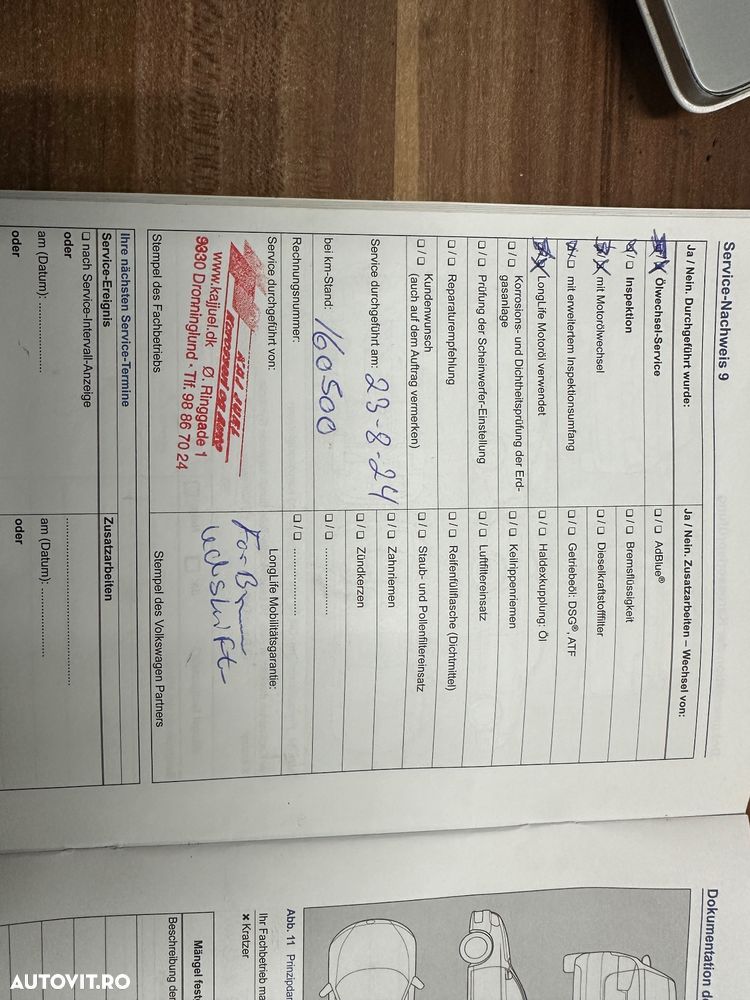 Service-Nachweis 9
Ja / Nein. Durchgeführt wurde:
Ölwechsel-Service
❑ Inspektion
mit Motorölwechsel
/ ❑ mit erweitertem Inspektionsumfang
LongLife Motoröl verwendet
❑ / ❑ Korrosions- und Dichtheitsprüfung der Erd-
gasanlage
❑ / ❑ Prüfung der Scheinwerfer-Einstellung
❑ / ❑ Reparaturempfehlung
❑ / ❑ Kundenwunsch
(auch auf dem Auftrag vermerken)
Service durchgeführt am: 23-8-24
bei km-Stand: 160500
Rechnungsnummer:
Service durchgeführt von:
www.kajjuel.dk Ø. Ringgade 1
9330 Dronninglund · Tlf. 98 86 70 24
Stempel des Fachbetriebs
Ja / Nein. Zusatzarbeiten – Wechsel von:
❑ / ❑ AdBlue®
❑ / ❑ Bremsflüssigkeit
❑ / ❑ Dieselkraftstofffilter
❑ / ❑ Getriebeöl: DSG®, ATF
❑ / ❑ Haldexkupplung: Öl
❑ / ❑ Keilrippenriemen
❑ / ❑ Luftfiltereinsatz
❑ / ❑ Reifenfüllflasche (Dichtmittel)
❑ / ❑ Staub- und Pollenfiltereinsatz
❑ / ❑ Zahnriemen
❑ / ❑ Zündkerzen
❑ / ❑ ....................
❑ / ❑ ....................
LongLife Mobilitätsgarantie:
Stempel des Volkswagen Partners
Ihre nächsten Service-Termine
Service-Ereignis
❑ nach Service-Intervall-Anzeige
oder
am (Datum): ....................
oder
Zusatzarbeiten
....................
am (Datum): ....................
oder
Dokumentation
Abb. 11 Prinzipdar
Ihr Fachbetrieb ma
× Kratzer
Mängel fest
Beschreibung der
AUTOVIT.RO